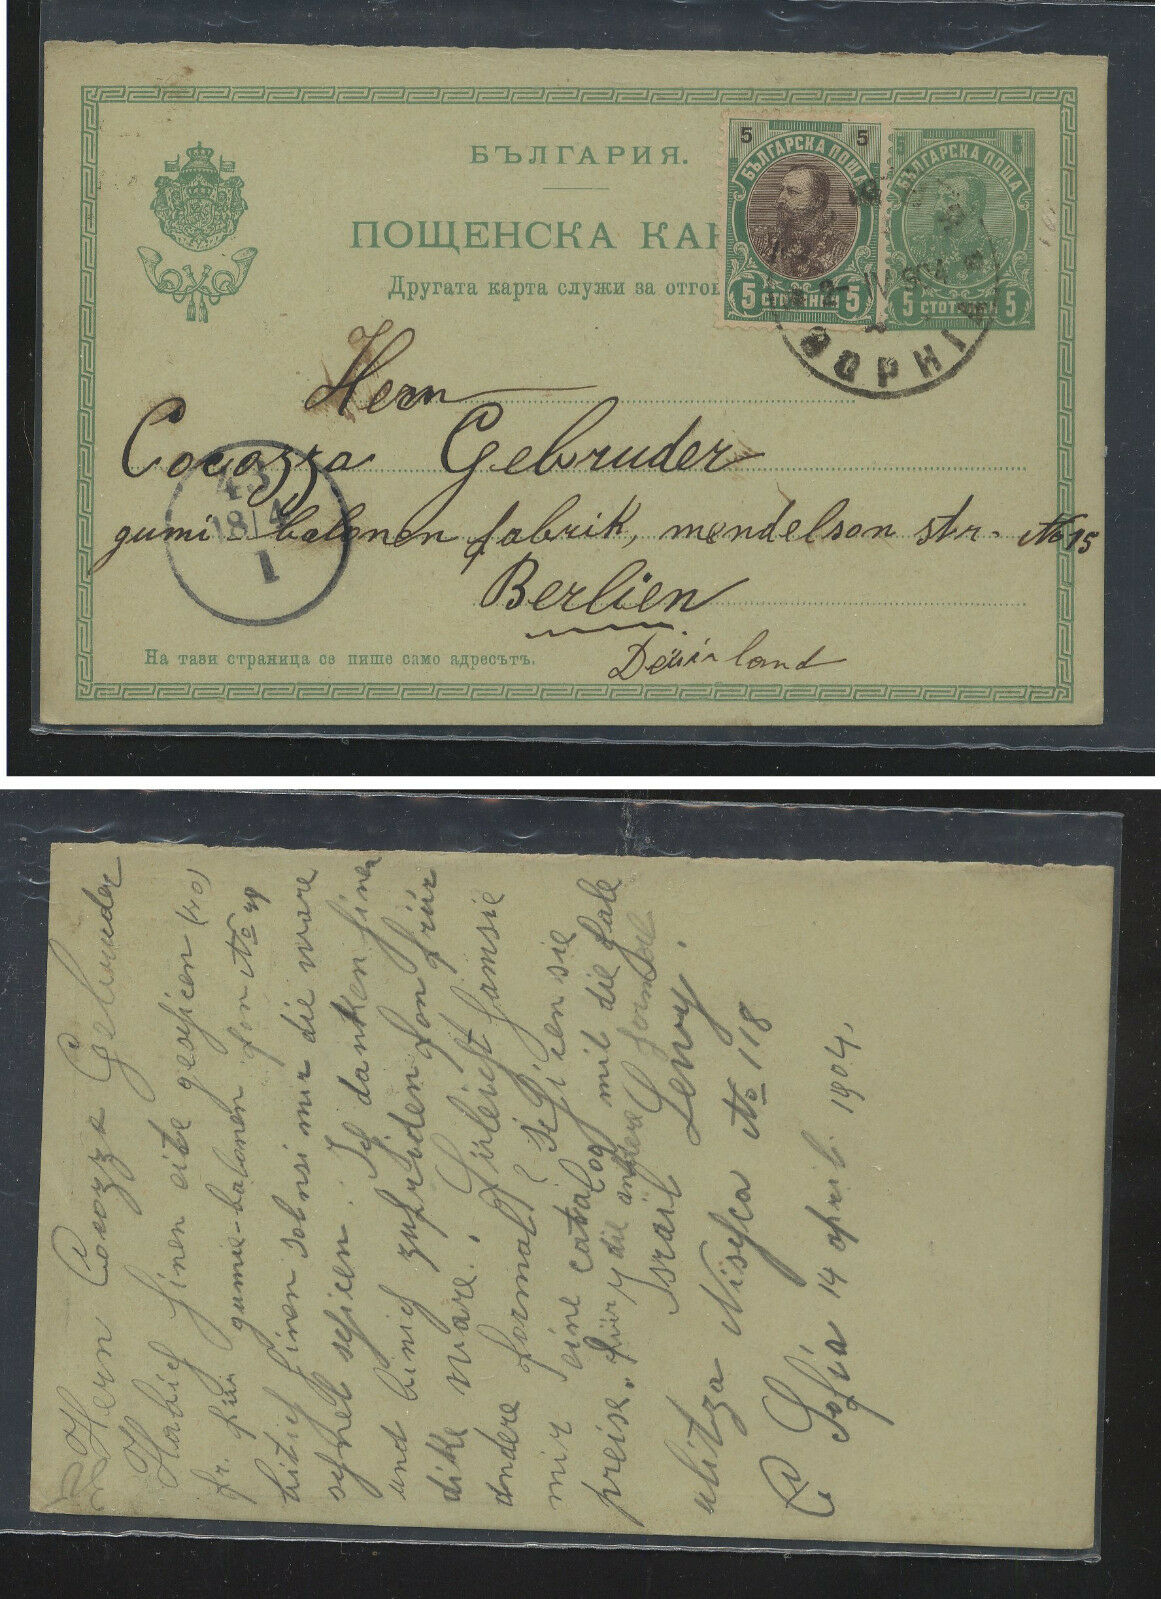 БЪЛГАРИЯ.
ПОЩЕНСКА КАР
Другата карта служи за отгов
5 5
БЪЛГАРСКА ПОЩА
5 СТОТИНКИ 5
5 5
БЪЛГАРСКА ПОЩА
5 СТОТИНКИ 5
IV 904
Hern
Cocozza Gebruder
gumi-balonen fabrik, mendelson str. No 15
Berlien
43
18/4
1
На тази страница се пише само адресътъ.
Hern Cocozza Gebruder
Habich hinen eite geschicen (40)
fr. für gumie-balonen fon No 49
bitich hinen sobnsi mir die ware
schnel schicen. Ich danken hinen
und binich zufrüden fon frür
dike ware. Fileicht hamsie
andere formal, schicen sie
mir eine catalog mit die fale
preise. für y die andere formale
Israil Levy.
ulitza Nischca No 118
Sofia 14 april 1904.